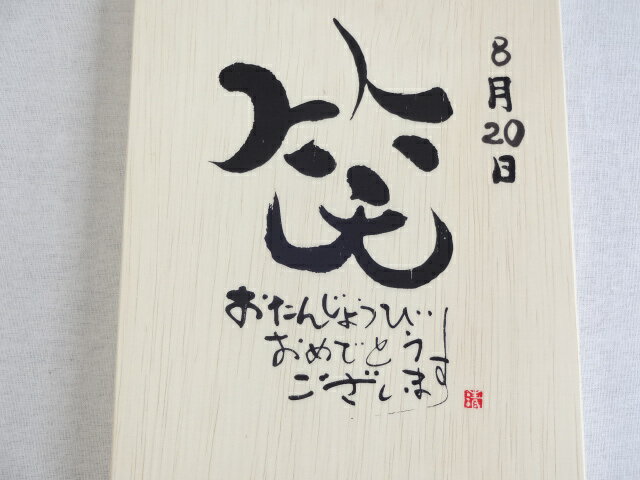 8月20日
笑
おたんじょうび
おめでとう
ございます